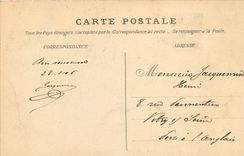 CARTE POSTALE
Tous les Pays étrangers n'acceptent pas la Correspondance au recto. — Se renseigner à la Poste.
CORRESPONDANCE
ADRESSE
Bon souvenir
Monsieur Jacquemin
Henri
8 rue
Vitry s/ Seine
Port à l'Anglais